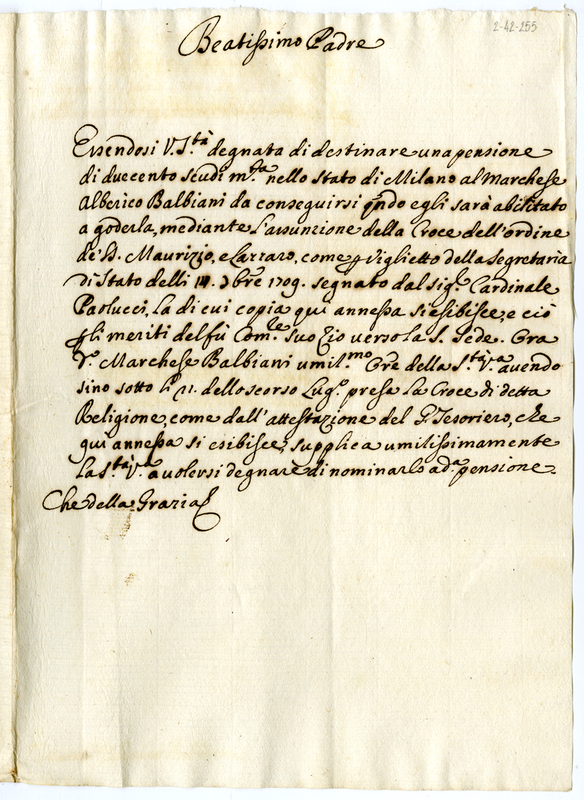 2-42-255
Beatissimo Padre
Essendosi V. S.tà degnata di destinare una pensione
di duecento scudi m.ta nello stato di Milano al Marchese
Alberico Balbiani da conseguirsi qndo egli sarà abilitato
a goderla, mediante l'assunzione della Croce dell'ordine
de' S. Maurizio, e Lazzaro, come p Viglietto della Segretaria
di Stato delli 14. 9bre 1709. segnato dal sig.r Cardinale
Paolucci, la di cui copia qui annessa si esibisce, e ciò
p li meriti del fù Com.le suo Zio verso la S. Sede. Ora
d.o Marchese Balbiani umil.mo Ore della S.tà V.a avendo
sino sotto li 21. dello scorso Lug.o presa la Croce di detta
Religione, come dall'attestazione del G. Tesoriero, che
qui annessa si esibisce, supplica umilissimamente
la S.tà V.a a volersi degnare di nominarlo a d.a pensione.
Che della Grazia